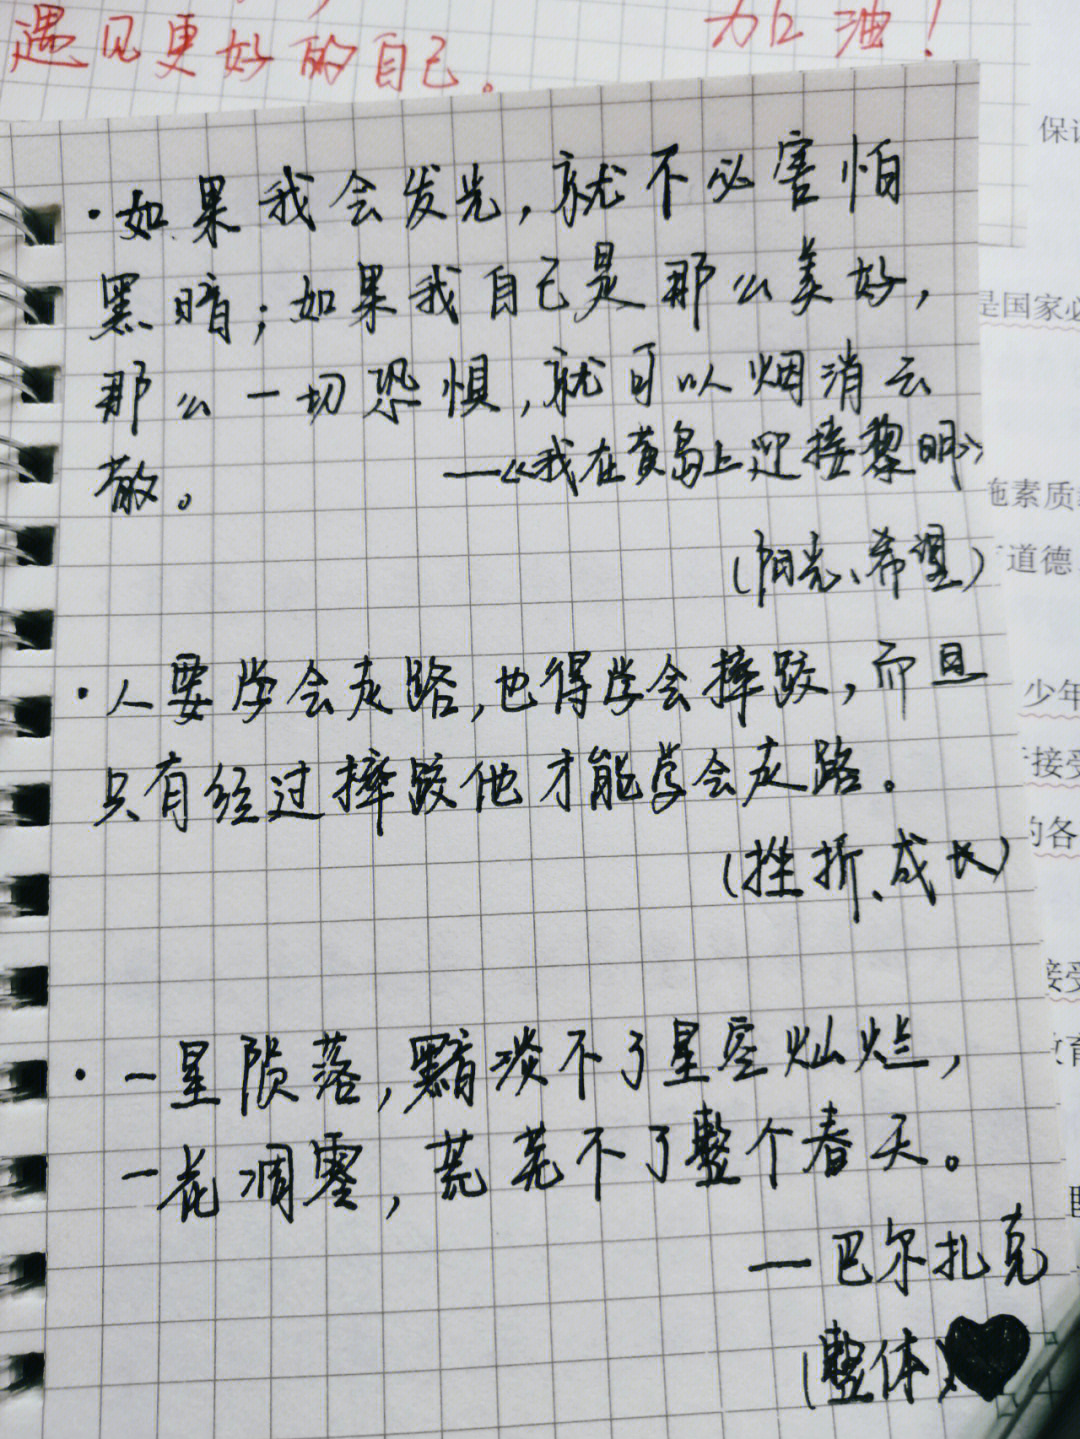 遇见更好的自己。
加油！
·如果我会发光,就不必害怕
黑暗;如果我自己是那么美好,
那么一切恐惧,就可以烟消云
散。
——《我在黄岛上迎接黎明》
(阳光、希望)
·人要学会走路,也得学会摔跤,而且
只有经过摔跤他才能学会走路。
(挫折、成长)
·一星陨落,黯淡不了星空灿烂,
一花凋零,荒芜不了整个春天。
—巴尔扎克
(整体)
保证
是国家必
施素质
道德
少年
接受
的各
接受
教育